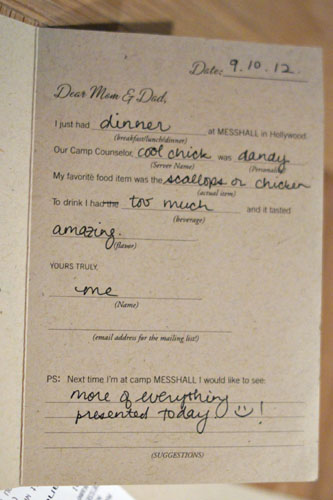 Date: 9.10.12.
Dear Mom & Dad,
I just had dinner at MESSHALL in Hollywood.
(breakfast/lunch/dinner)
Our Camp Counselor, cool chick was dandy
(Server Name) (Personality)
My favorite food item was the scallops or chicken
(actual item)
To drink I had the too much and it tasted
(beverage)
amazing.
(flavor)
YOURS TRULY,
me
(Name)
(email address for the mailing list!)
PS: Next time I'm at camp MESSHALL I would like to see:
more of everything
presented today :)!
(SUGGESTIONS)